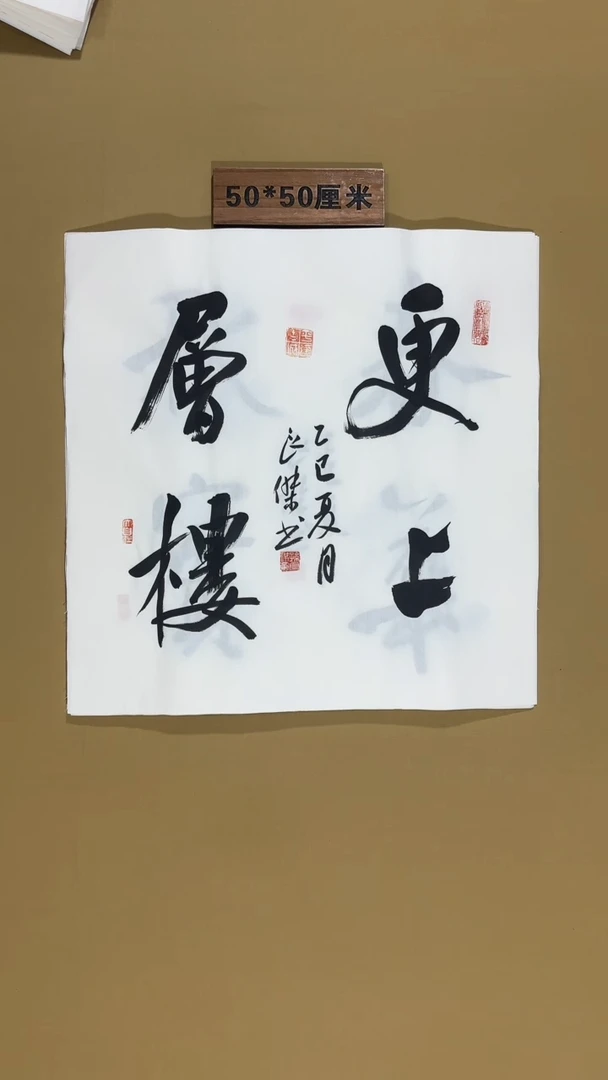 50*50厘米
更上
層樓
乙巳夏月
傑书